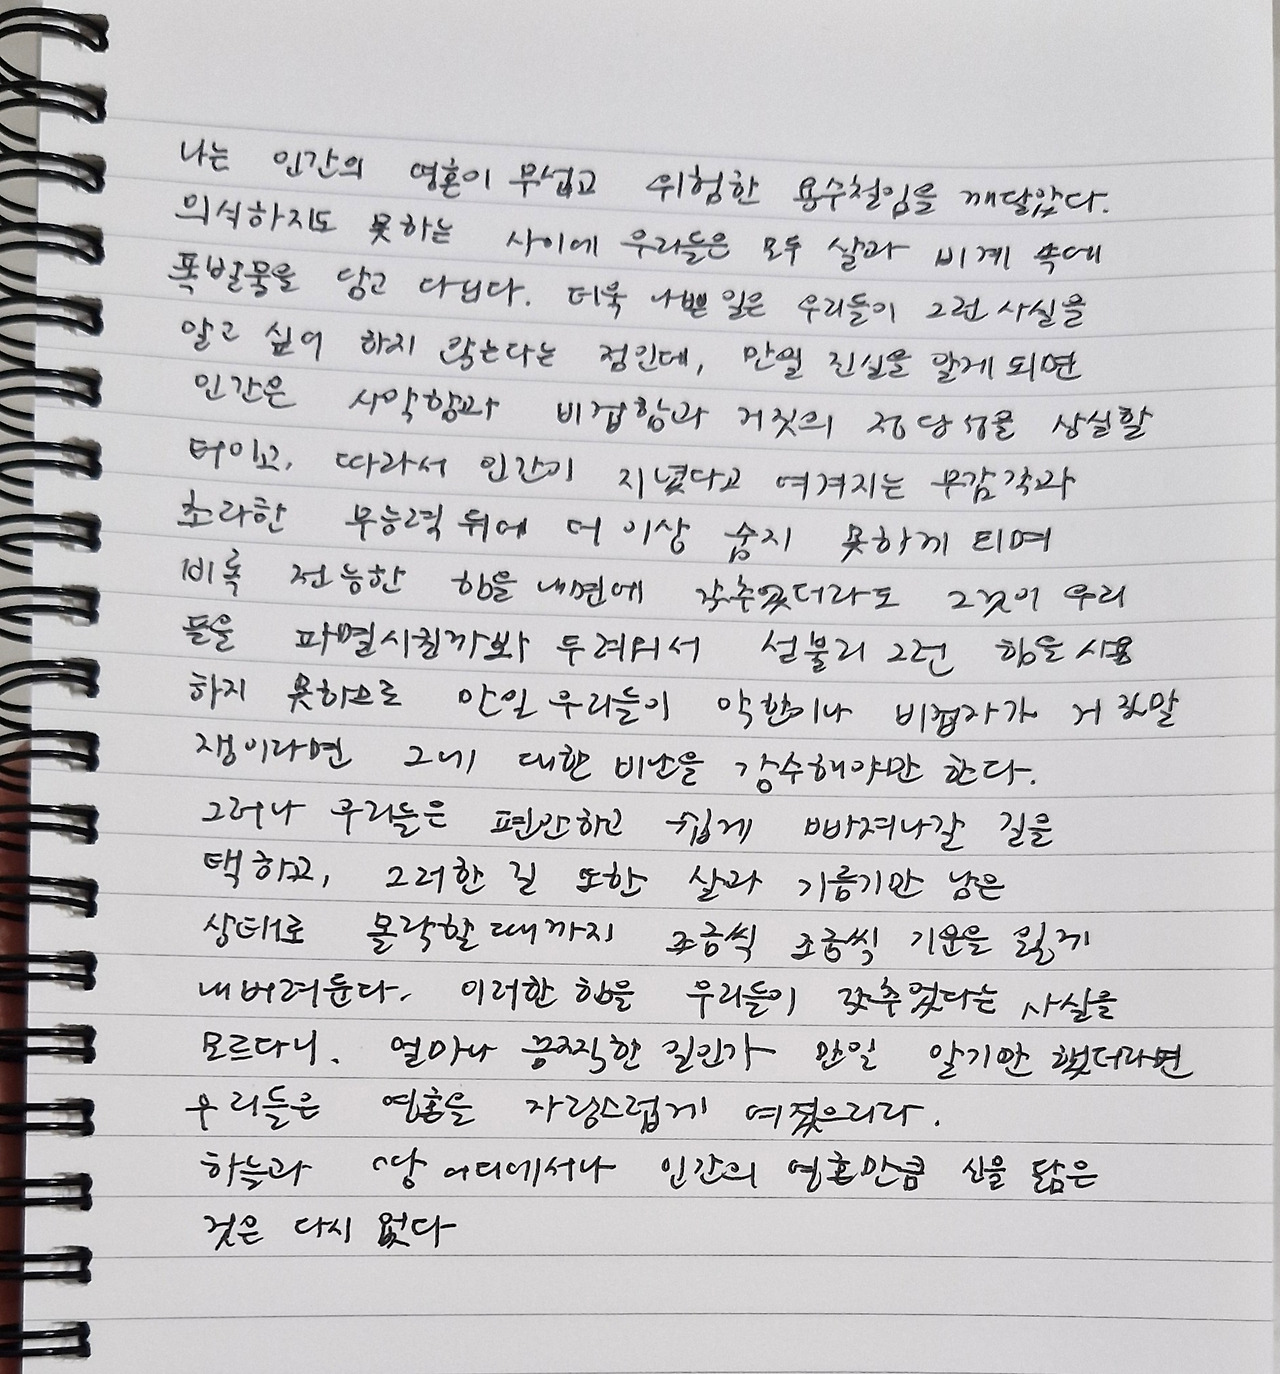 나는 인간의 영혼이 무섭고 위험한 용수철임을 깨달았다.
의식하지도 못하는 사이에 우리들은 모두 살과 비계 속에
폭발물을 담고 다닙다. 더욱 나쁜 일은 우리들이 그런 사실을
알고 싶어 하지 않는다는 점인데, 만일 진실을 알게 되면
인간은 사악함과 비겁함과 거짓의 정당성을 상실할
터이고, 따라서 인간이 지녔다고 여겨지는 무감각과
초라한 무능력 뒤에 더 이상 숨지 못하게 되며
비록 전능한 힘을 내면에 갖추었더라도 그것이 우리
들을 파멸시킬까봐 두려워서 섣불리 그런 힘을 사용
하지 못하므로 만일 우리들이 악한이나 비겁자가 거짓말
쟁이라면 그에 대한 비난을 감수해야만 한다.
그러나 우리들은 편안하고 쉽게 빠져나갈 길을
택하고, 그러한 길 또한 살과 기름기만 남은
상태로 몰락할 때까지 조금씩 조금씩 기운을 잃게
내버려둔다. 이러한 힘을 우리들이 갖추었다는 사실을
모르다니. 얼마나 끔찍한 일인가 만일 알기만 했더라면
우리들은 영혼을 자랑스럽게 여겼으리라.
하늘과 땅 어디에서나 인간의 영혼만큼 신을 닮은
것은 다시 없다